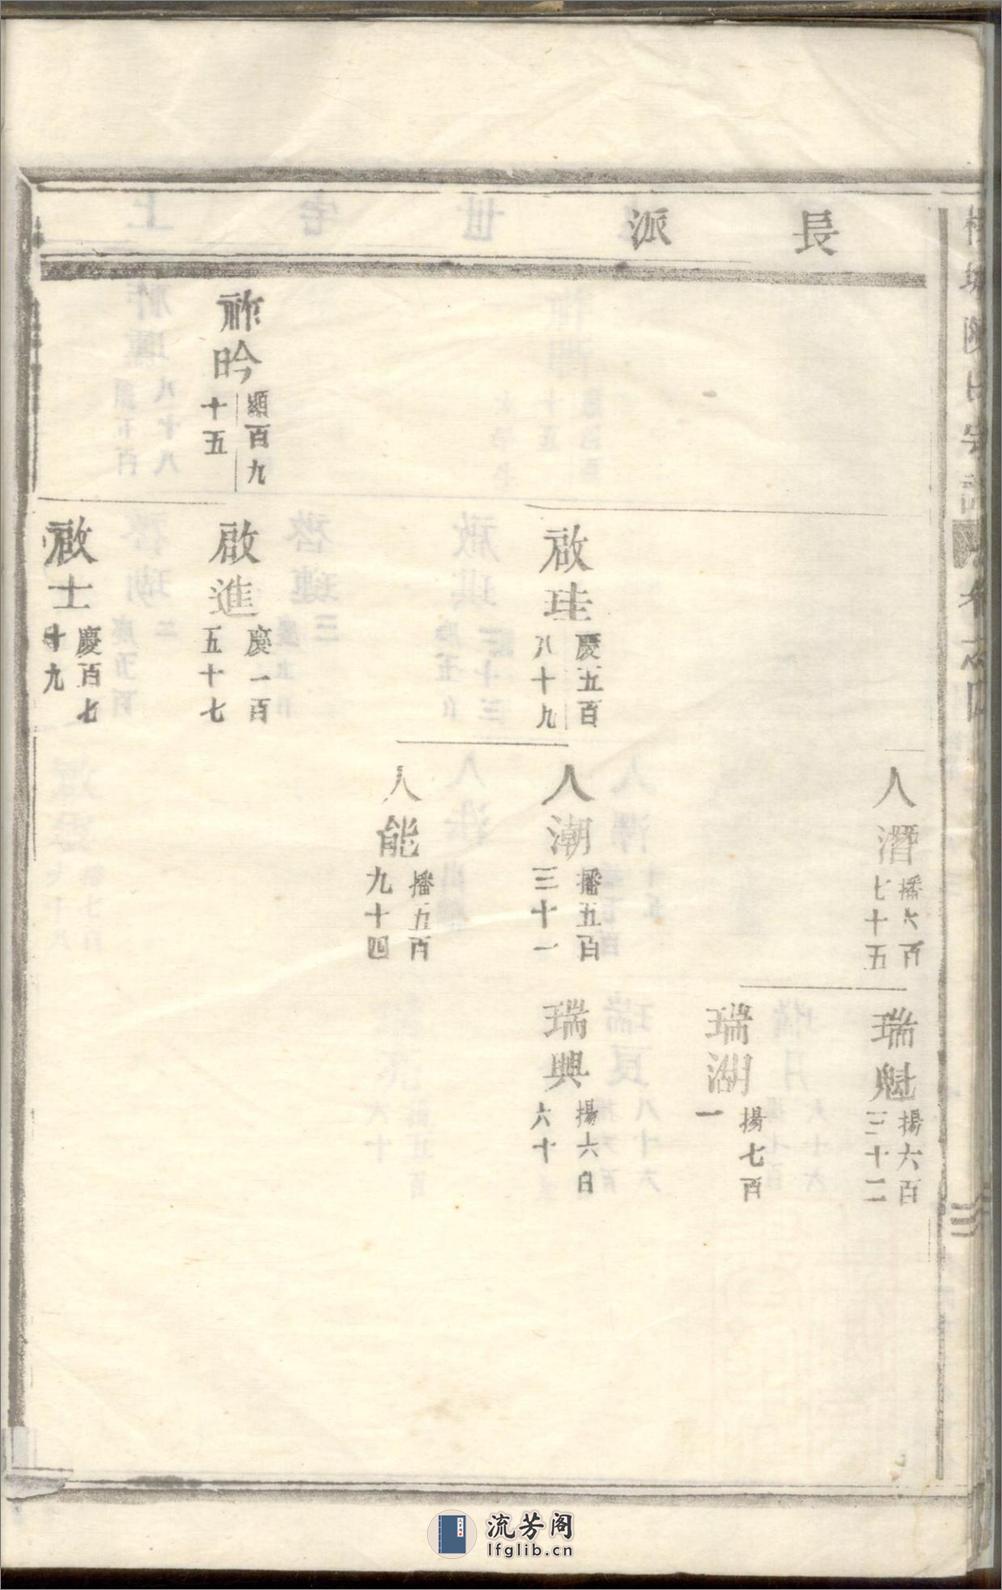 長派
人潛 播六百七十五
瑞魁 揚六百三十二
瑞湖 揚七百一
啟珪 慶五百八十九
人潮 播五百三十一
瑞興 揚六百六十
人能 播五百九十四
祚昑 顯百九十五
啟進 慶一百五十七
啟士 慶百七十九
流芳阁
lfglib.cn